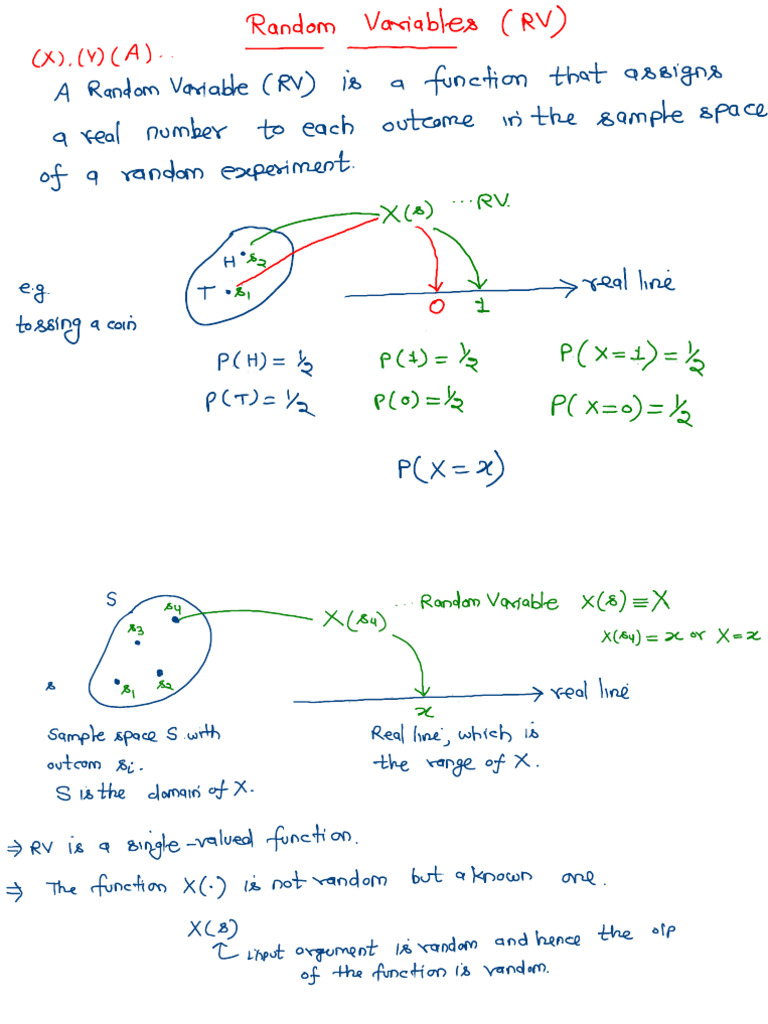 Random Variables (RV)
(X), (Y) (A) ...
A Random Variable (RV) is a function that assigns
a real number to each outcome in the sample space
of a random experiment.
X(s) ... RV.
H s2
T s1
e.g.
tossing a coin
real line
0 1
P(H) = 1/2 P(1) = 1/2 P(X=1) = 1/2
P(T) = 1/2 P(0) = 1/2 P(X=0) = 1/2
P(X = x)
S
s4
s3
s1 s2
s
X(s4)
... Random Variable X(s) ≡ X
X(s4) = x or X = x
real line
x
Sample space S with
outcom si.
S is the domain of X.
Real line, which is
the range of X.
⇒ RV is a single-valued function.
⇒ The function X(·) is not random but a known one.
X(s)
input argument is random and hence the o/p
of the function is random.